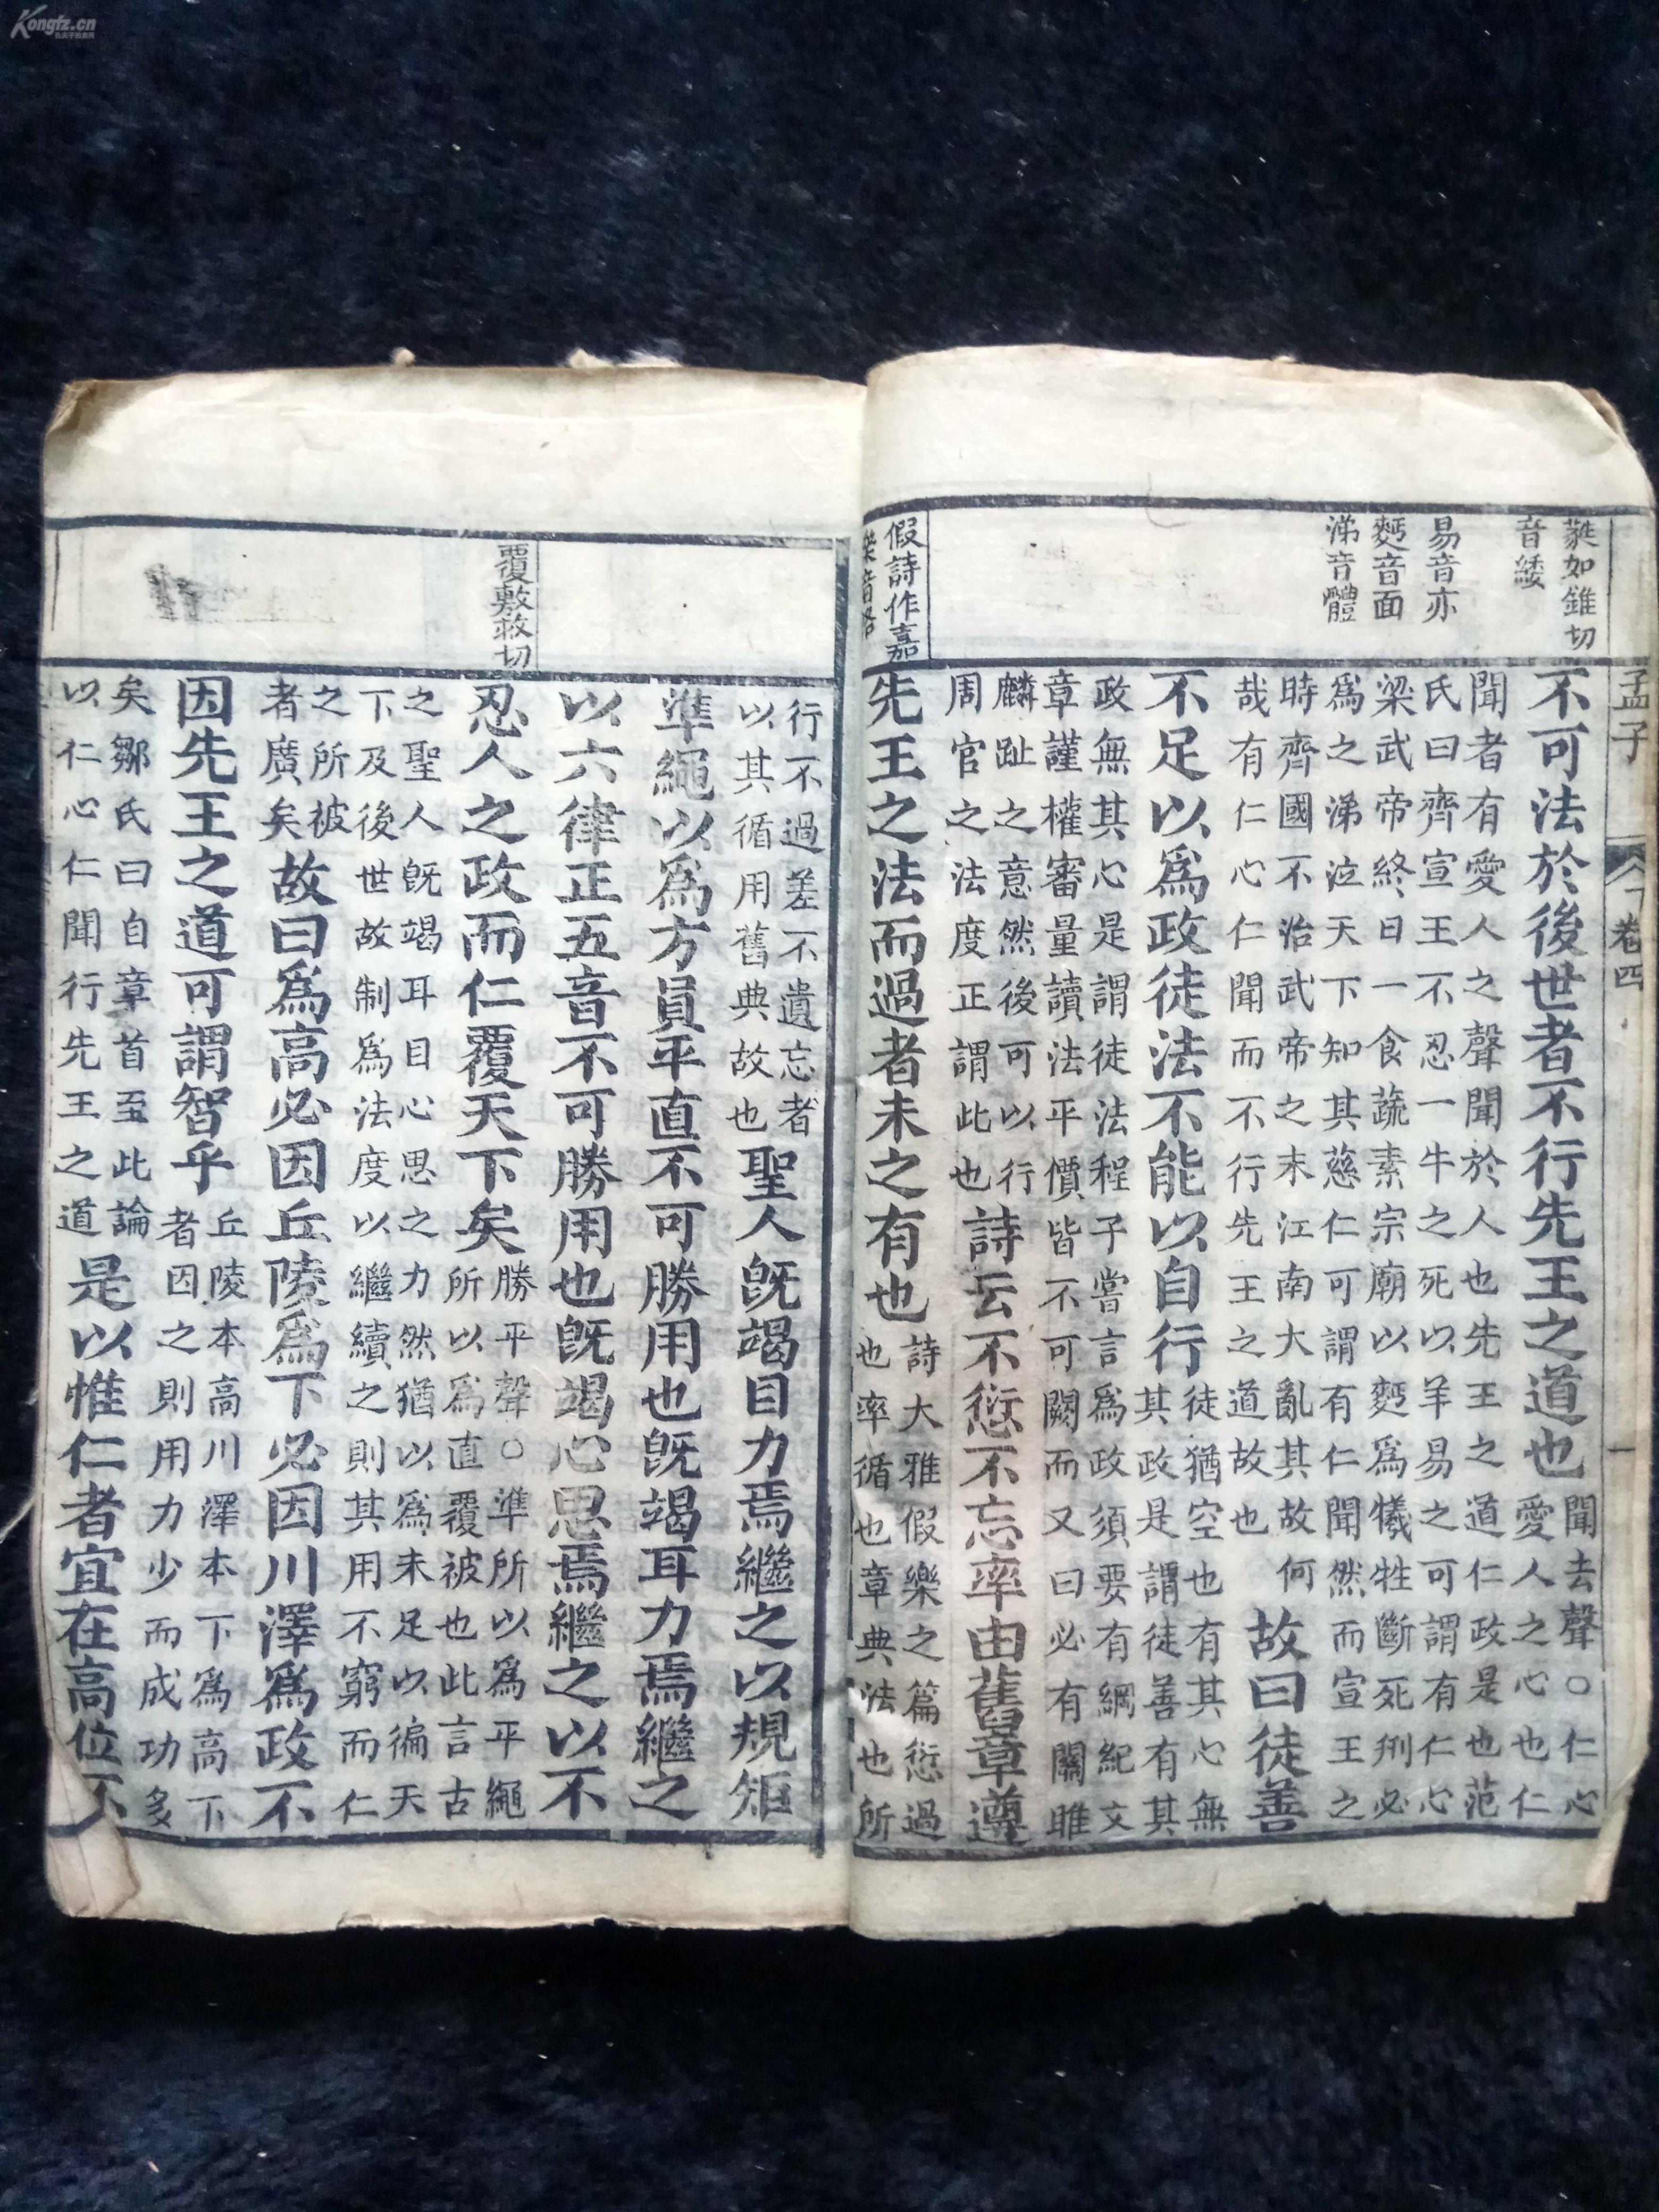 Kongfz.cn
孟子
下卷四
一
蕤如錐切
音緌
易音亦
麪音面
涕音體
假詩作嘉
樂音洛
不可法於後世者不行先王之道也
聞去聲○仁心
愛人之心也仁
聞者有愛人之聲聞於人也先王之道仁政是也范
氏曰齊宣王不忍一牛之死以羊易之可謂有仁心
梁武帝終日一食蔬素宗廟以麪爲犧牲斷死刑必
爲之涕泣天下知其慈仁可謂有仁聞然而宣王之
時齊國不治武帝之末江南大亂其故何
哉有仁心仁聞而不行先王之道故也
故曰徒善
不足以爲政徒法不能以自行
徒猶空也有其心無
其政是謂徒善有其
政無其心是謂徒法程子嘗言爲政須要有綱紀文
章謹權審量讀法平價皆不可闕而又曰必有關雎
麟趾之意然後可以行
周官之法度正謂此也
詩云不愆不忘率由舊章遵
先王之法而過者未之有也
詩大雅假樂之篇愆過
也率循也章典法也所
行不過差不遺忘者
以其循用舊典故也
聖人旣竭目力焉繼之以規矩
準繩以爲方員平直不可勝用也旣竭耳力焉繼之
以六律正五音不可勝用也旣竭心思焉繼之以不
忍人之政而仁覆天下矣
勝平聲○準所以爲平繩
所以爲直覆被也此言古
之聖人旣竭耳目心思之力然猶以爲未足以徧天
下及後世故制爲法度以繼續之則其用不窮而仁
之所被
者廣矣
故曰爲高必因丘陵爲下必因川澤爲政不
因先王之道可謂智乎
丘陵本高川澤本下爲高下
者因之則用力少而成功多
矣鄒氏曰自章首至此論
以仁心仁聞行先王之道
是以惟仁者宜在高位不
覆敷救切